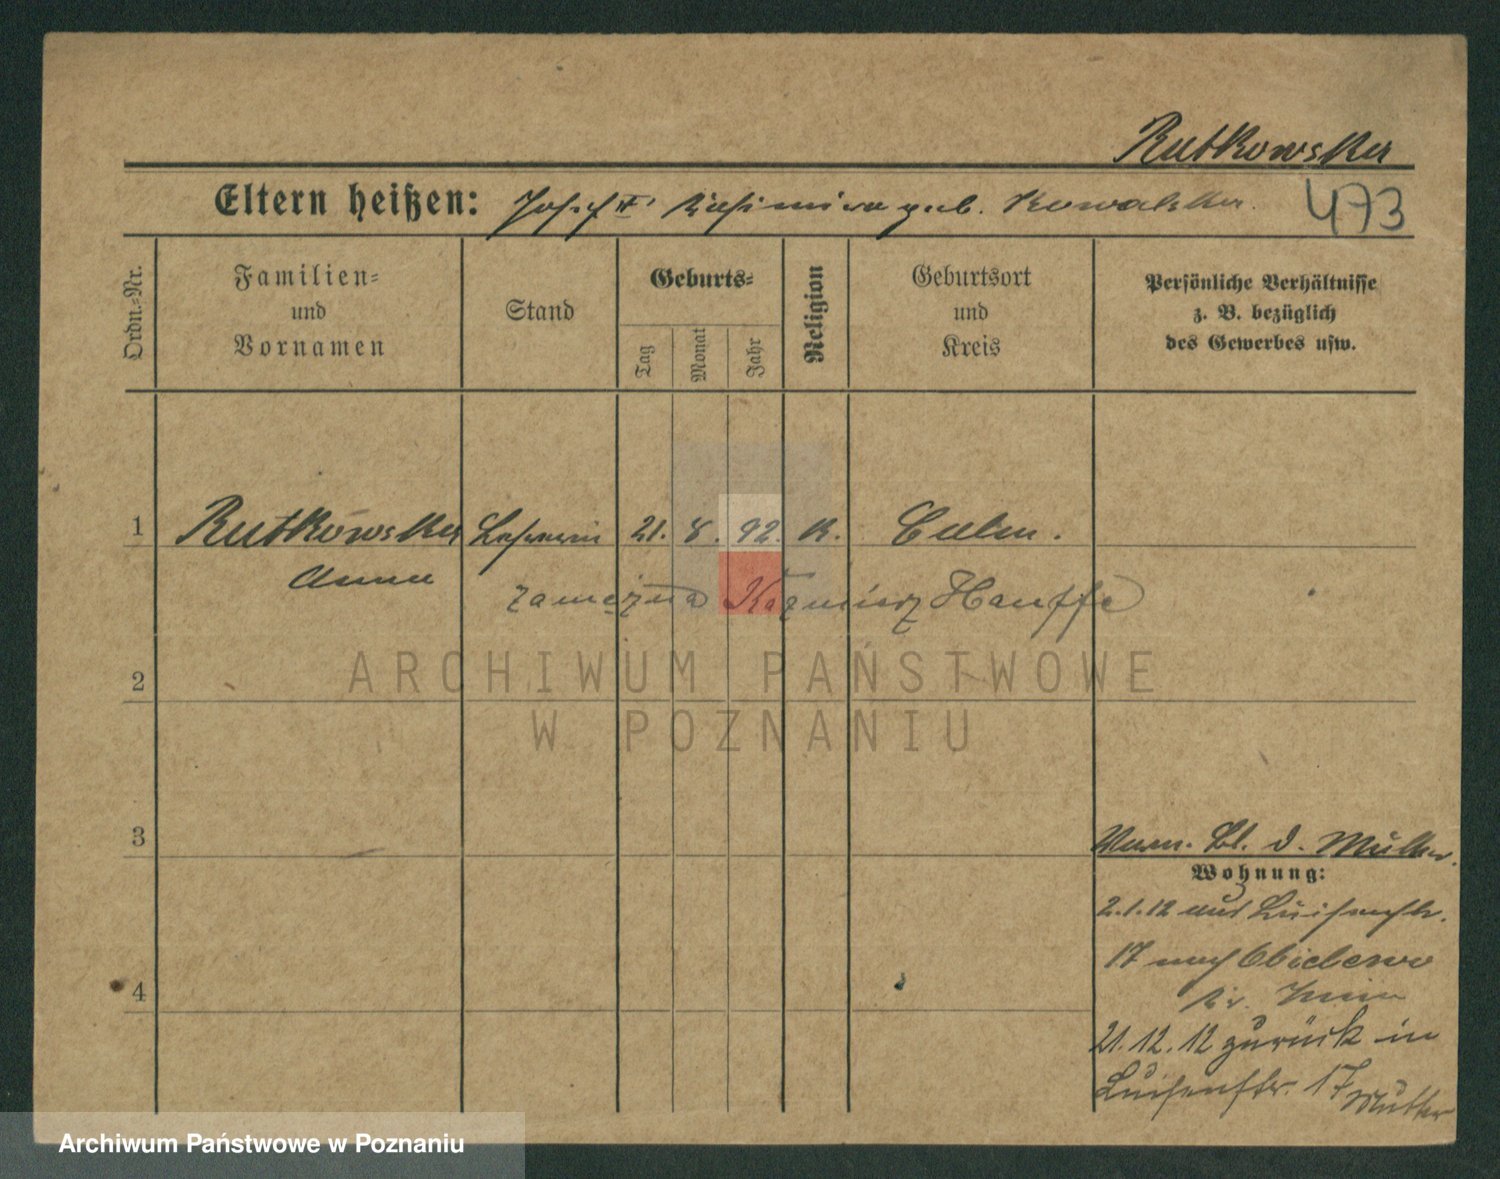 Rutkowska
Eltern heißen: Josef † Kasimira geb. Kowalska.
473
Ordn.=Nr.
Familien=
und
Vornamen
Stand
Geburts=
Tag
Monat
Jahr
Religion
Geburtsort
und
Kreis
Persönliche Verhältnisse
z. B. bezüglich
des Gewerbes usw.
1 Rutkowska Lehrerin 21. 8. 92. K. Culm.
Anna
zamężna Kaźmierz Hauffe
2
ARCHIWUM PAŃSTWOWE
W POZNANIU
3
Bl. d. Mutter.
Wohnung:
2.1.12 aus Luisenstr.
17 nach Obielewo
Kr. Znin
4
21.12.12 zurück in
Luisenstr. 17 Mutter
Archiwum Państwowe w Poznaniu